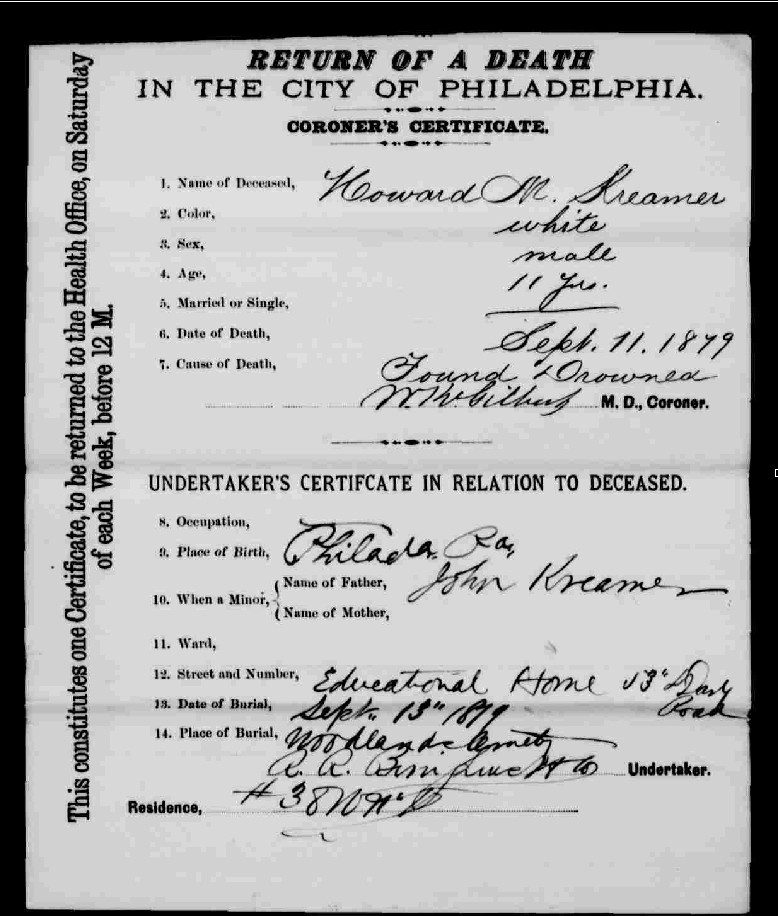 RETURN OF A DEATH
IN THE CITY OF PHILADELPHIA.
CORONER'S CERTIFICATE.
1. Name of Deceased, Howard M. Kreamer
2. Color, white
3. Sex, male
4. Age, 11 Yrs.
5. Married or Single,
6. Date of Death, Sept. 11. 1879
7. Cause of Death, Found Drowned
M. D., Coroner.
UNDERTAKER'S CERTIFCATE IN RELATION TO DECEASED.
8. Occupation,
9. Place of Birth, Philada. Pa,
10. When a Minor, Name of Father, John Kreamer
Name of Mother,
11. Ward,
12. Street and Number, Educational Home
Road
13. Date of Burial, Sept. 13" 1879
14. Place of Burial, Woodlands
Undertaker.
Residence,
This constitutes one Certificate, to be returned to the Health Office, on Saturday
of each Week, before 12 M.